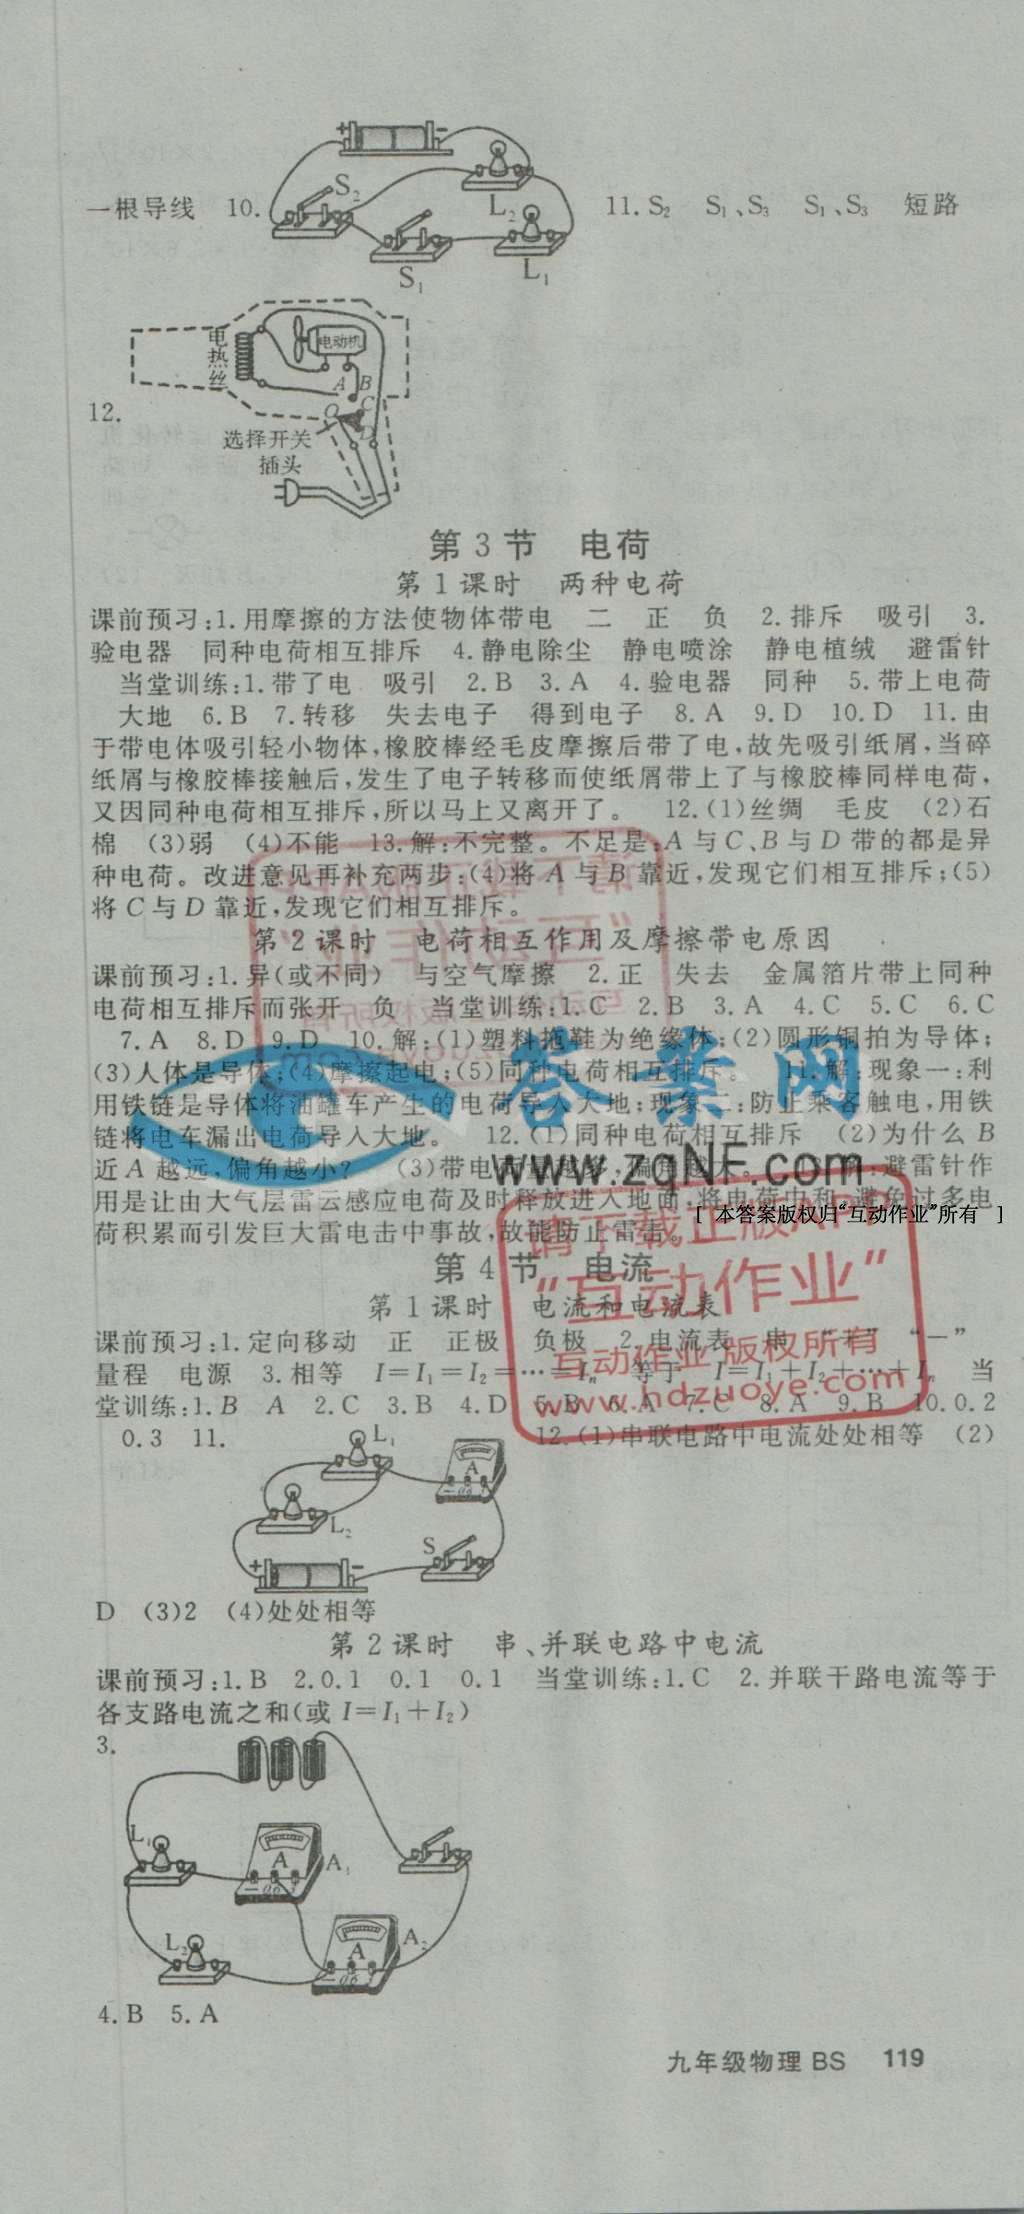 一根导线 10. S₂ L₂ S₁ L₁ 11.S₂ S₁、S₃ S₁、S₃ 短路
电热丝 电动机 A B C D O
12.
选择开关
插头
第3节 电荷
第1课时 两种电荷
课前预习:1.用摩擦的方法使物体带电 二 正 负 2.排斥 吸引 3.
验电器 同种电荷相互排斥 4.静电除尘 静电喷涂 静电植绒 避雷针
当堂训练:1.带了电 吸引 2.B 3.A 4.验电器 同种 5.带上电荷
大地 6.B 7.转移 失去电子 得到电子 8.A 9.D 10.D 11.由
于带电体吸引轻小物体,橡胶棒经毛皮摩擦后带了电,故先吸引纸屑,当碎
纸屑与橡胶棒接触后,发生了电子转移而使纸屑带上了与橡胶棒同样电荷,
又因同种电荷相互排斥,所以马上又离开了。 12.(1)丝绸 毛皮 (2)石
棉 (3)弱 (4)不能 13.解:不完整。不足是:A与C、B与D带的都是异
种电荷。改进意见再补充两步:(4)将A与B靠近,发现它们相互排斥;(5)
将C与D靠近,发现它们相互排斥。
第2课时 电荷相互作用及摩擦带电原因
课前预习:1.异(或不同) 与空气摩擦 2.正 失去 金属箔片带上同种
电荷相互排斥而张开 负 当堂训练:1.C 2.B 3.A 4.C 5.C 6.C
7.A 8.D 9.D 10.解:(1)塑料拖鞋为绝缘体;(2)圆形铜拍为导体;
(3)人体是导体;(4)摩擦起电;(5)同种电荷相互排斥。 11.解:现象一:利
用铁链是导体将油罐车产生的电荷导入大地;现象二:防止乘客触电,用铁
链将电车漏出电荷导入大地。 12.(1)同种电荷相互排斥 (2)为什么B
近A越远,偏角越小? (3)带电荷量越多,偏角越大。 13.解:避雷针作
用是让由大气层雷云感应电荷及时释放进入地面,将电荷中和,避免过多电
荷积累而引发巨大雷电击中事故,故能防止雷害。
答案网
www.zqNF.com
[ 本答案版权归“互动作业”所有 ]
请下载正版APP
“互动作业”
互动作业 版权所有
www.hdzuoye.com
第4节 电流
第1课时 电流和电流表
课前预习:1.定向移动 正 正极 负极 2.电流表 串 “+” “−”
量程 电源 3.相等 I=I₁=I₂=…=Iₙ 等于 I=I₁+I₂+…+Iₙ 当
堂训练:1.B A 2.C 3.B 4.D 5.B 6.A 7.C 8.A 9.B 10.0.2
0.3 11. L₁ L₂ A S 12.(1)串联电路中电流处处相等 (2)
D (3)2 (4)处处相等
第2课时 串、并联电路中电流
课前预习:1.B 2.0.1 0.1 0.1 当堂训练:1.C 2.并联干路电流等于
各支路电流之和(或I=I₁+I₂)
3.
L₁ A A₁
L₂ A A₂
4.B 5.A
九年级物理 BS 119